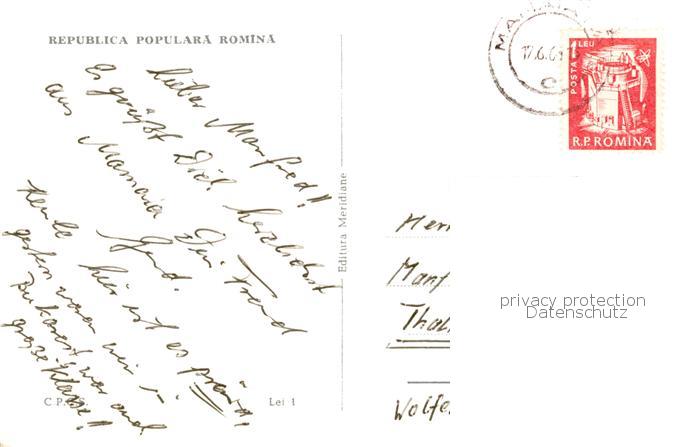 REPUBLICA POPULARĂ ROMÎNĂ
Lieber Manfred!!
Es grüßt Dich herzlichst
aus Mamaia Dein Freund
Gerd.
Mensch hier ist es prima!
gestern waren wir in
Bukarest war auch
große Klasse!!
C P. C.
Lei 1
Editura Meridiane
MAMAIA
17.6.6
POSTA 1 LEU
R.P.ROMINA
Herr
Manf
Thal
Wolfe
privacy protection
Datenschutz